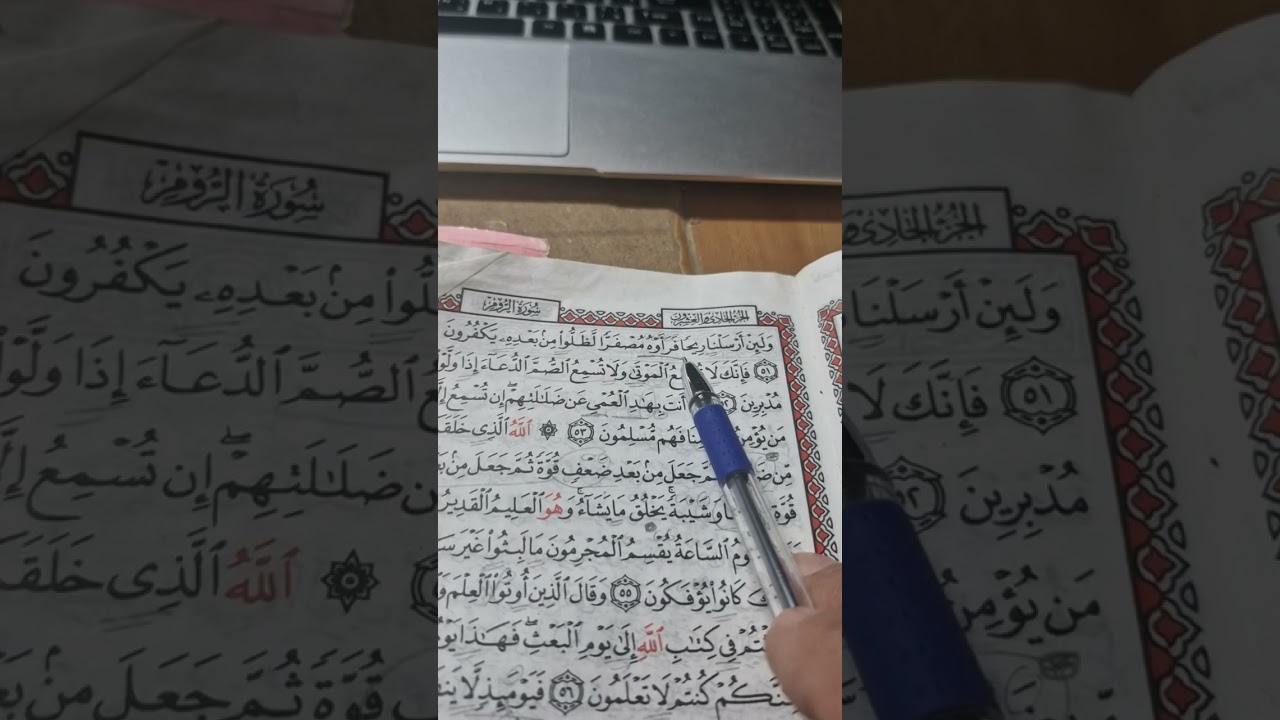 سُورَةُ الرُّومِ
الجُزْءُ الحَادِي وَالعِشْرُونَ
وَلَئِنْ أَرْسَلْنَا رِيحًا فَرَأَوْهُ مُصْفَرًّا لَّظَلُّوا۟ مِنۢ بَعْدِهِۦ يَكْفُرُونَ
٥١ فَإِنَّكَ لَا الْمَوْتَىٰ وَلَا تُسْمِعُ ٱلصُّمَّ ٱلدُّعَآءَ إِذَا وَلَّوْا۟
مُدْبِرِينَ ٥٢ أَنتَ بِهَٰدِ ٱلْعُمْىِ عَن ضَلَٰلَتِهِمْ ۖ إِن تُسْمِعُ
مَن يُؤْمِنُ فَهُم مُّسْلِمُونَ ٥٣ ۞ ٱللَّهُ ٱلَّذِى خَلَقَ
مِّن جَعَلَ مِنۢ بَعْدِ ضَعْفٍ قُوَّةً ثُمَّ جَعَلَ مِنۢ
قُوَّةٍ وَشَيْبَةً ۚ يَخْلُقُ مَا يَشَآءُ ۖ وَهُوَ ٱلْعَلِيمُ ٱلْقَدِيرُ
ٱلسَّاعَةُ يُقْسِمُ ٱلْمُجْرِمُونَ مَا لَبِثُوا۟ غَيْرَ
كَانُوا۟ يُؤْفَكُونَ ٥٥ وَقَالَ ٱلَّذِينَ أُوتُوا۟ ٱلْعِلْمَ
فِى كِتَٰبِ ٱللَّهِ إِلَىٰ يَوْمِ ٱلْبَعْثِ ۖ فَهَٰذَا
كُنتُمْ لَا تَعْلَمُونَ ٥٦ فَيَوْمَئِذٍ لَّا